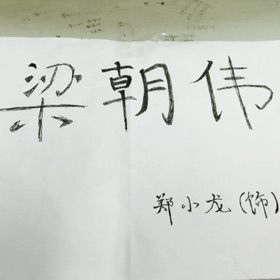 梁朝伟
郑小龙(饰)